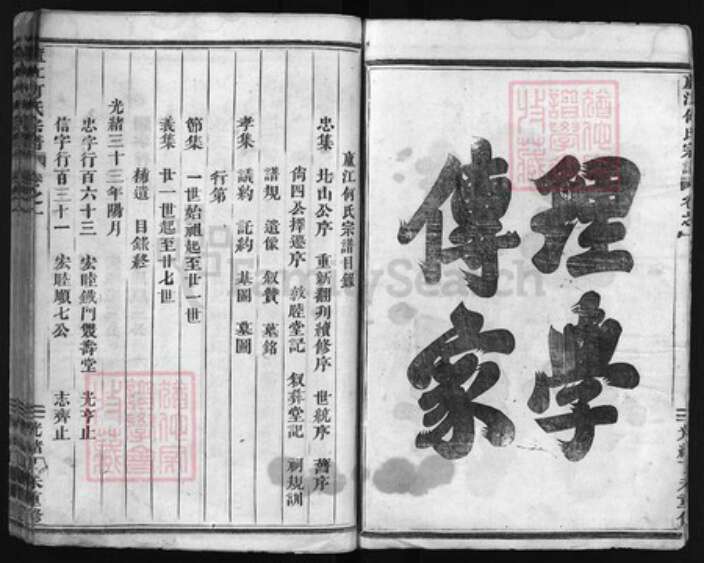 廬江何氏宗譜 卷之一
理學
傳家
廬江何氏宗譜目錄
忠集 北山公序 重新翻刋續修序 世統序 舊序
尙四公擇遷序 敦睦堂記 叙彞堂記 祠規訓
譜規 遺像 叙贊 墓銘
孝集 議約 託約 基圖 墓圖
行第
節集 一世始祖起至廿一世
義集 廿一世起至廿七世
補遺 目錄終
光緒三十三年陽月
忠字行百六十三 宏睦鐵門製壽堂 光亨止
信字行百三十一 宏睦順七公 志齊止
廬江何氏宗譜 卷之一
光緒丁未重修